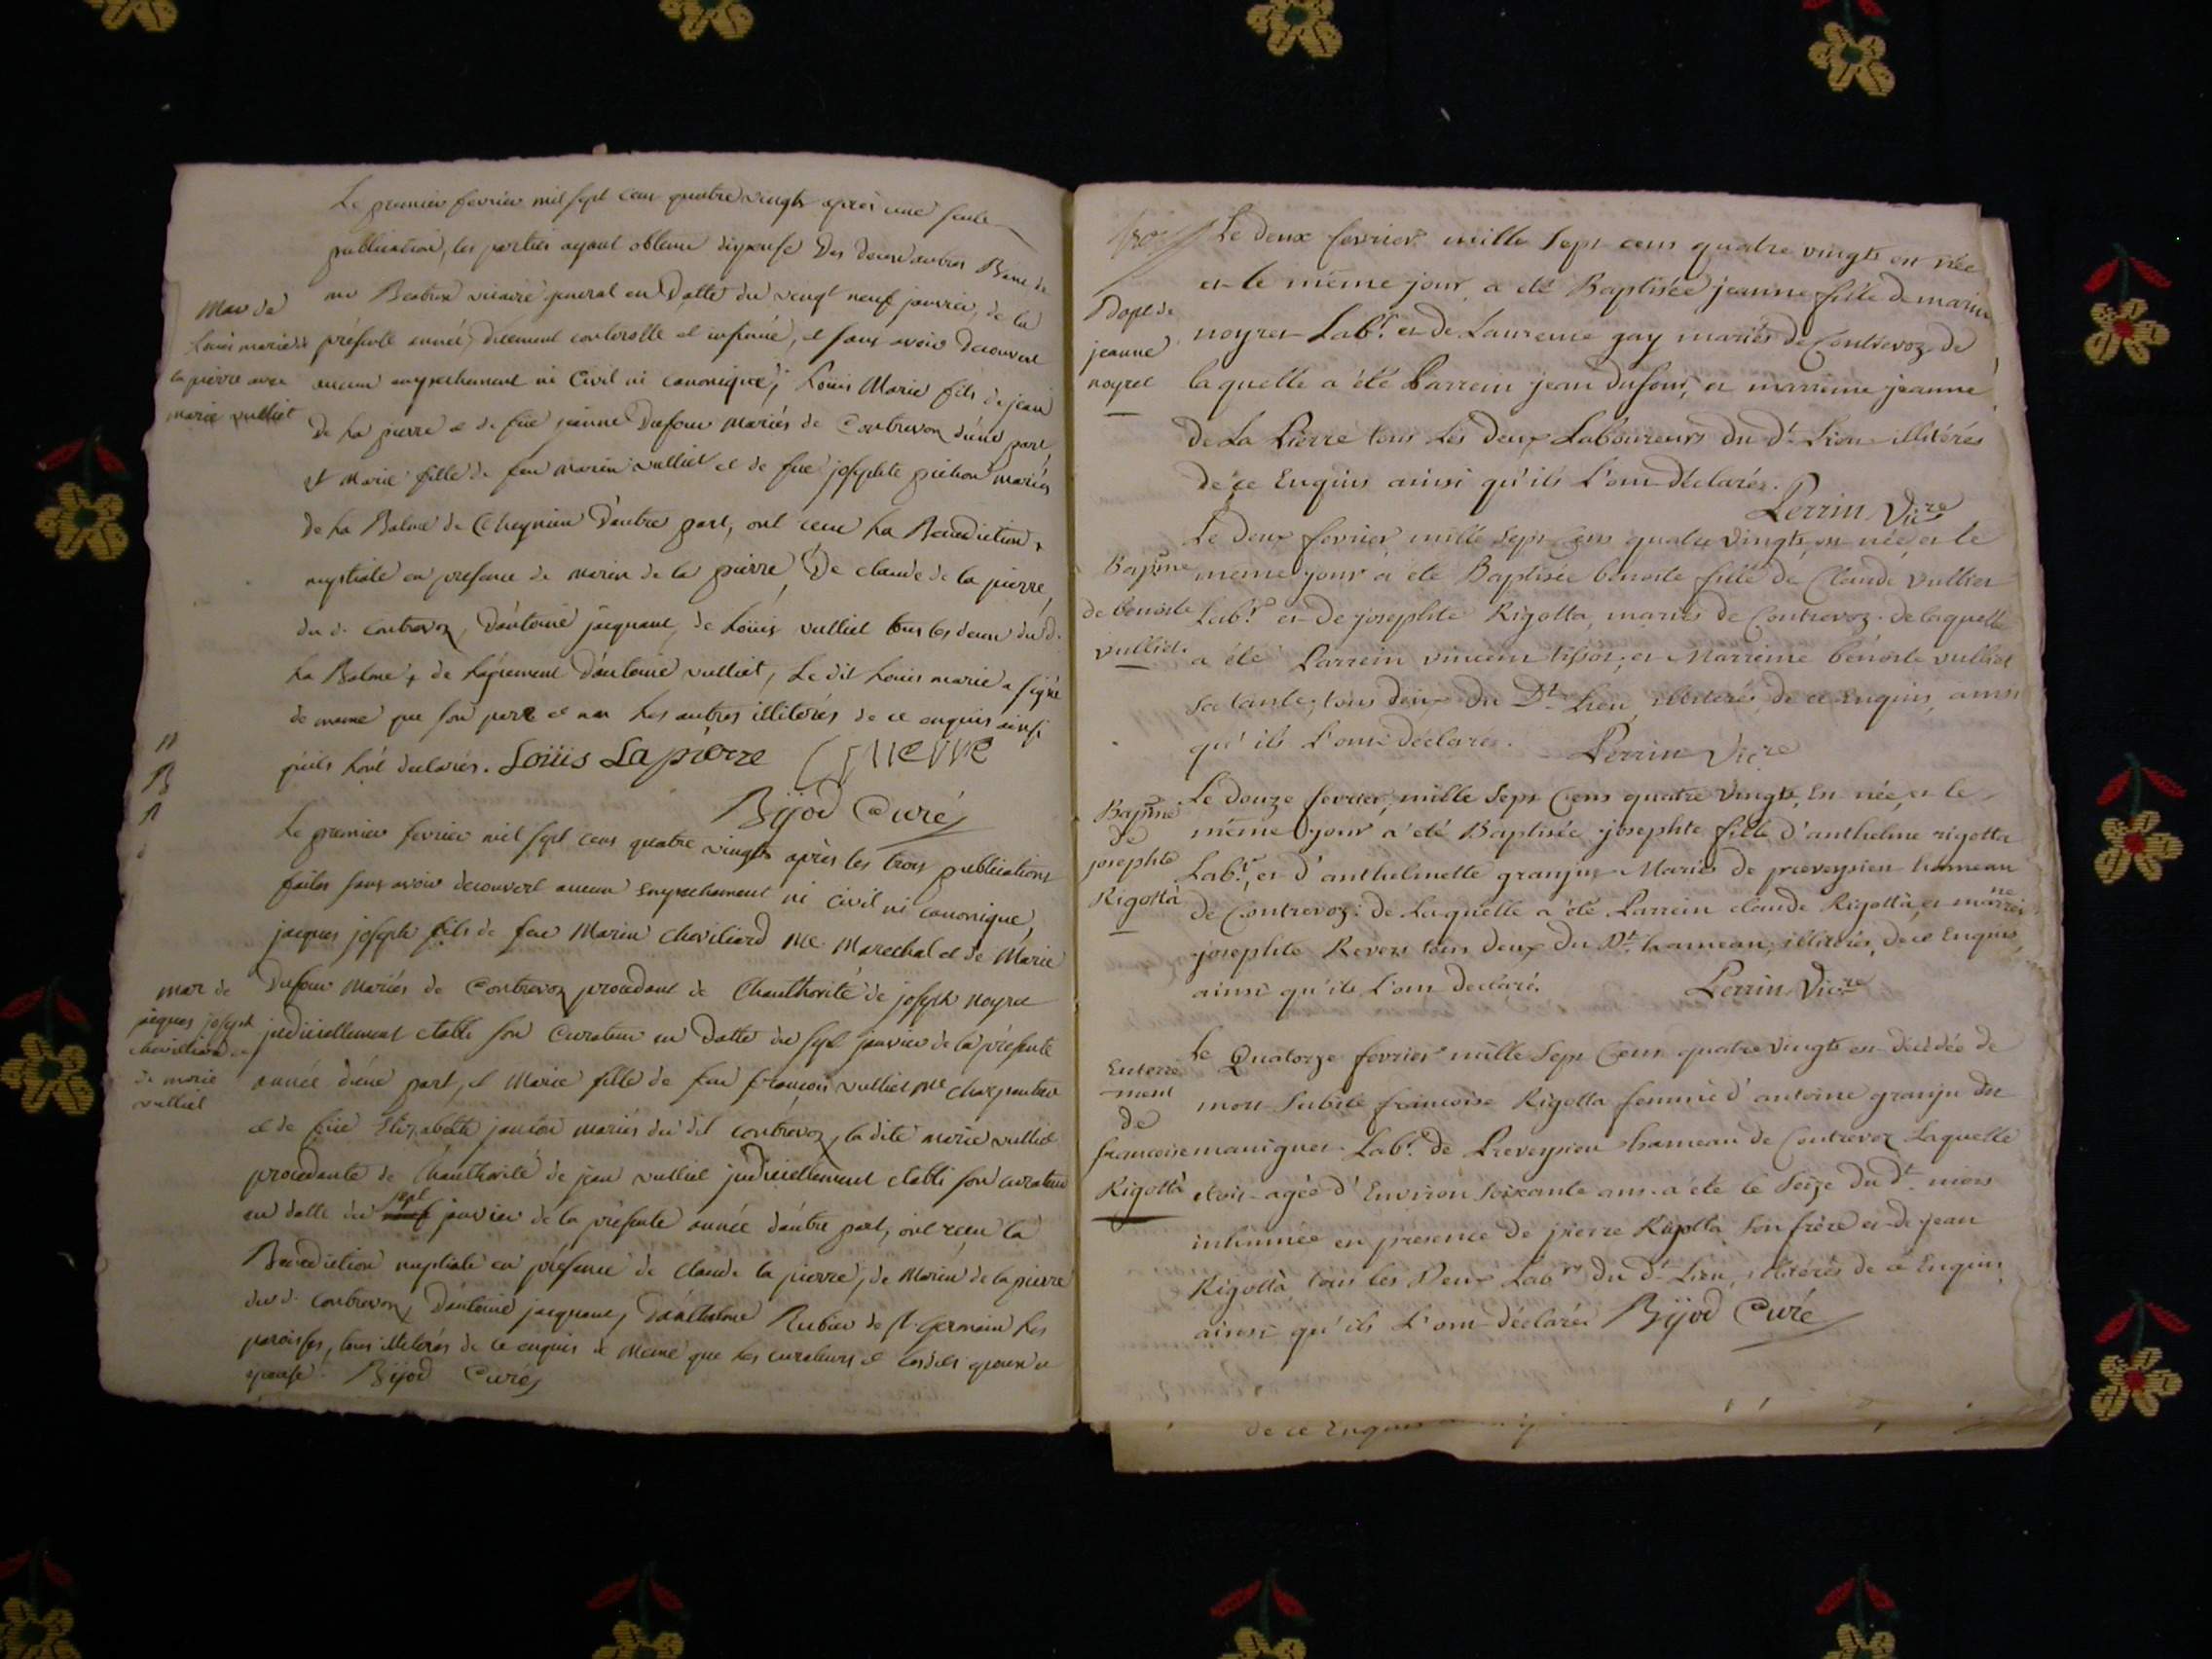 Le premier fevrier mil sept cens quatre vingts après une seule
publication, les parties ayant obtenu dispense des deux autres Bans de
mr Beatrix vicaire general en datte du vingt neuf janvier de la
mar de
Louis marie de
la pierre avec
marie vulliet
présente année, deuement controlle et insinué, et sans avoir decouvert
aucun empechement ni Civil ni canonique; Loüis Marie fils de jean
De La pierre et de füe jeanne Dufour Mariés de Contrevoz d'une part,
et Marie fille de feu marin vulliet et de füe josephte pichon mariés
de La Balme de Cheynieu d'autre part, ont reçu La Benediction
nuptiale en presence de marin de la pierre, De claude de la pierre,
du d. contrevoz, d'antoine jacquant, de Loüis vulliet tous les deux du d.
La Balme, de d'antoine vulliet, Le dit Louis marie a signé
de meme que son pere et non Les autres illiterés de ce enquis ainsi
qu'ils L'ont declarés. Loüis La pierre
Bijod Curé
Le premier fevrier mil sept cens quatre vingts après les trois publications
faites sans avoir decouvert aucun empechement ni civil ni canonique,
jacques joseph fils de feu Marin Chevilliard me Marechal et de Marie
mar de
jacques joseph
chevilliard
de marie
vulliet
Dufour Mariés de Contrevoz procedant de L'hauthorité de joseph noyret
judiciellement etabli son Curateur en datte du sept janvier de la présente
année d'une part, et Marie fille de feu françois vulliet me charpentier
et de füe Elizabeth mariés du dit contrevoz, la dite marie vulliet
procedante de L'hauthorité de jean vulliet judiciellement etabli son curateur
en datte du sept janvier de la présente année d'autre part, ont reçu la
Benediction nuptiale en présence de Claude la pierre, de Marin de la pierre
du d. Contrevoz, d'antoine jacquant, d'anthelme Rubier de st. germain Les
paroisses, tous illiterés de ce enquis de meme que Les curateurs et Lesdits epoux et
epouse. Bijod Curé
Le deux fevrier mille sept cens quatre vingts est née
et le même jour a eté Baptisée jeanne fille de marin
Bapt de
jeanne
noyret
noyret Labr. et de Laurence gay mariés de Contrevoz de
laquelle a été Parrein jean dufour, et marreine jeanne
De La Pierre tous Les Deux Laboureurs du Dt Lieu illitérés
de ce Enquis ainsi qu'ils L'ont déclarés.
Perrin Vicre
Le Deux fevrier mille sept cens quatre vingts est née et le
Bapme
de benoite
vulliet.
même jour a été Baptisée benoite fille de Claude vulliet
Labr. et De josephte Rigotta, mariés de Contrevoz. de laquelle
a été Parrein vincent tissot, et Marreine bénoite vulliet
sa tante; tous deux du Dt Lieu illitérés de ce Enquis, ainsi
qu'ils L'ont déclarés. Perrin Vicre
Le douze fevrier, mille sept Cens quatre Vingts, Est née, et le
Bapme
de
josephte
Rigotta
même jour a été Baptisée josephte fille d'anthelme rigotta
Labr., et d'anthelmette granjus Mariés de preveysieu hameau
de Contrevoz: de Laquelle a été Parrein claude Rigotta, et marreine
josephte Revers tous deux du Dt hameau, illitérés, de ce Enquis
ainsi qu'ils L'ont declaré. Perrin Vicre
Enterre-
ment
de
francoise
Rigotta
Le Quatorze fevrier mille sept Cens quatre vingts est decédée de
mort subite francoise Rigotta femme d'antoine granju dit
manigues Labr. de Preveysieu hameau de Contrevoz Laquelle
etoit agée d'Environ soixante ans. a été le seize du Dt mois
inhumée en présence de pierre Rigotta son frère et de jean
Rigotta, tous les Deux Labrs du Dt Lieu, illitérés de ce Enquis
ainsi qu'ils L'ont déclarés Bijod Curé
de ce Enquis